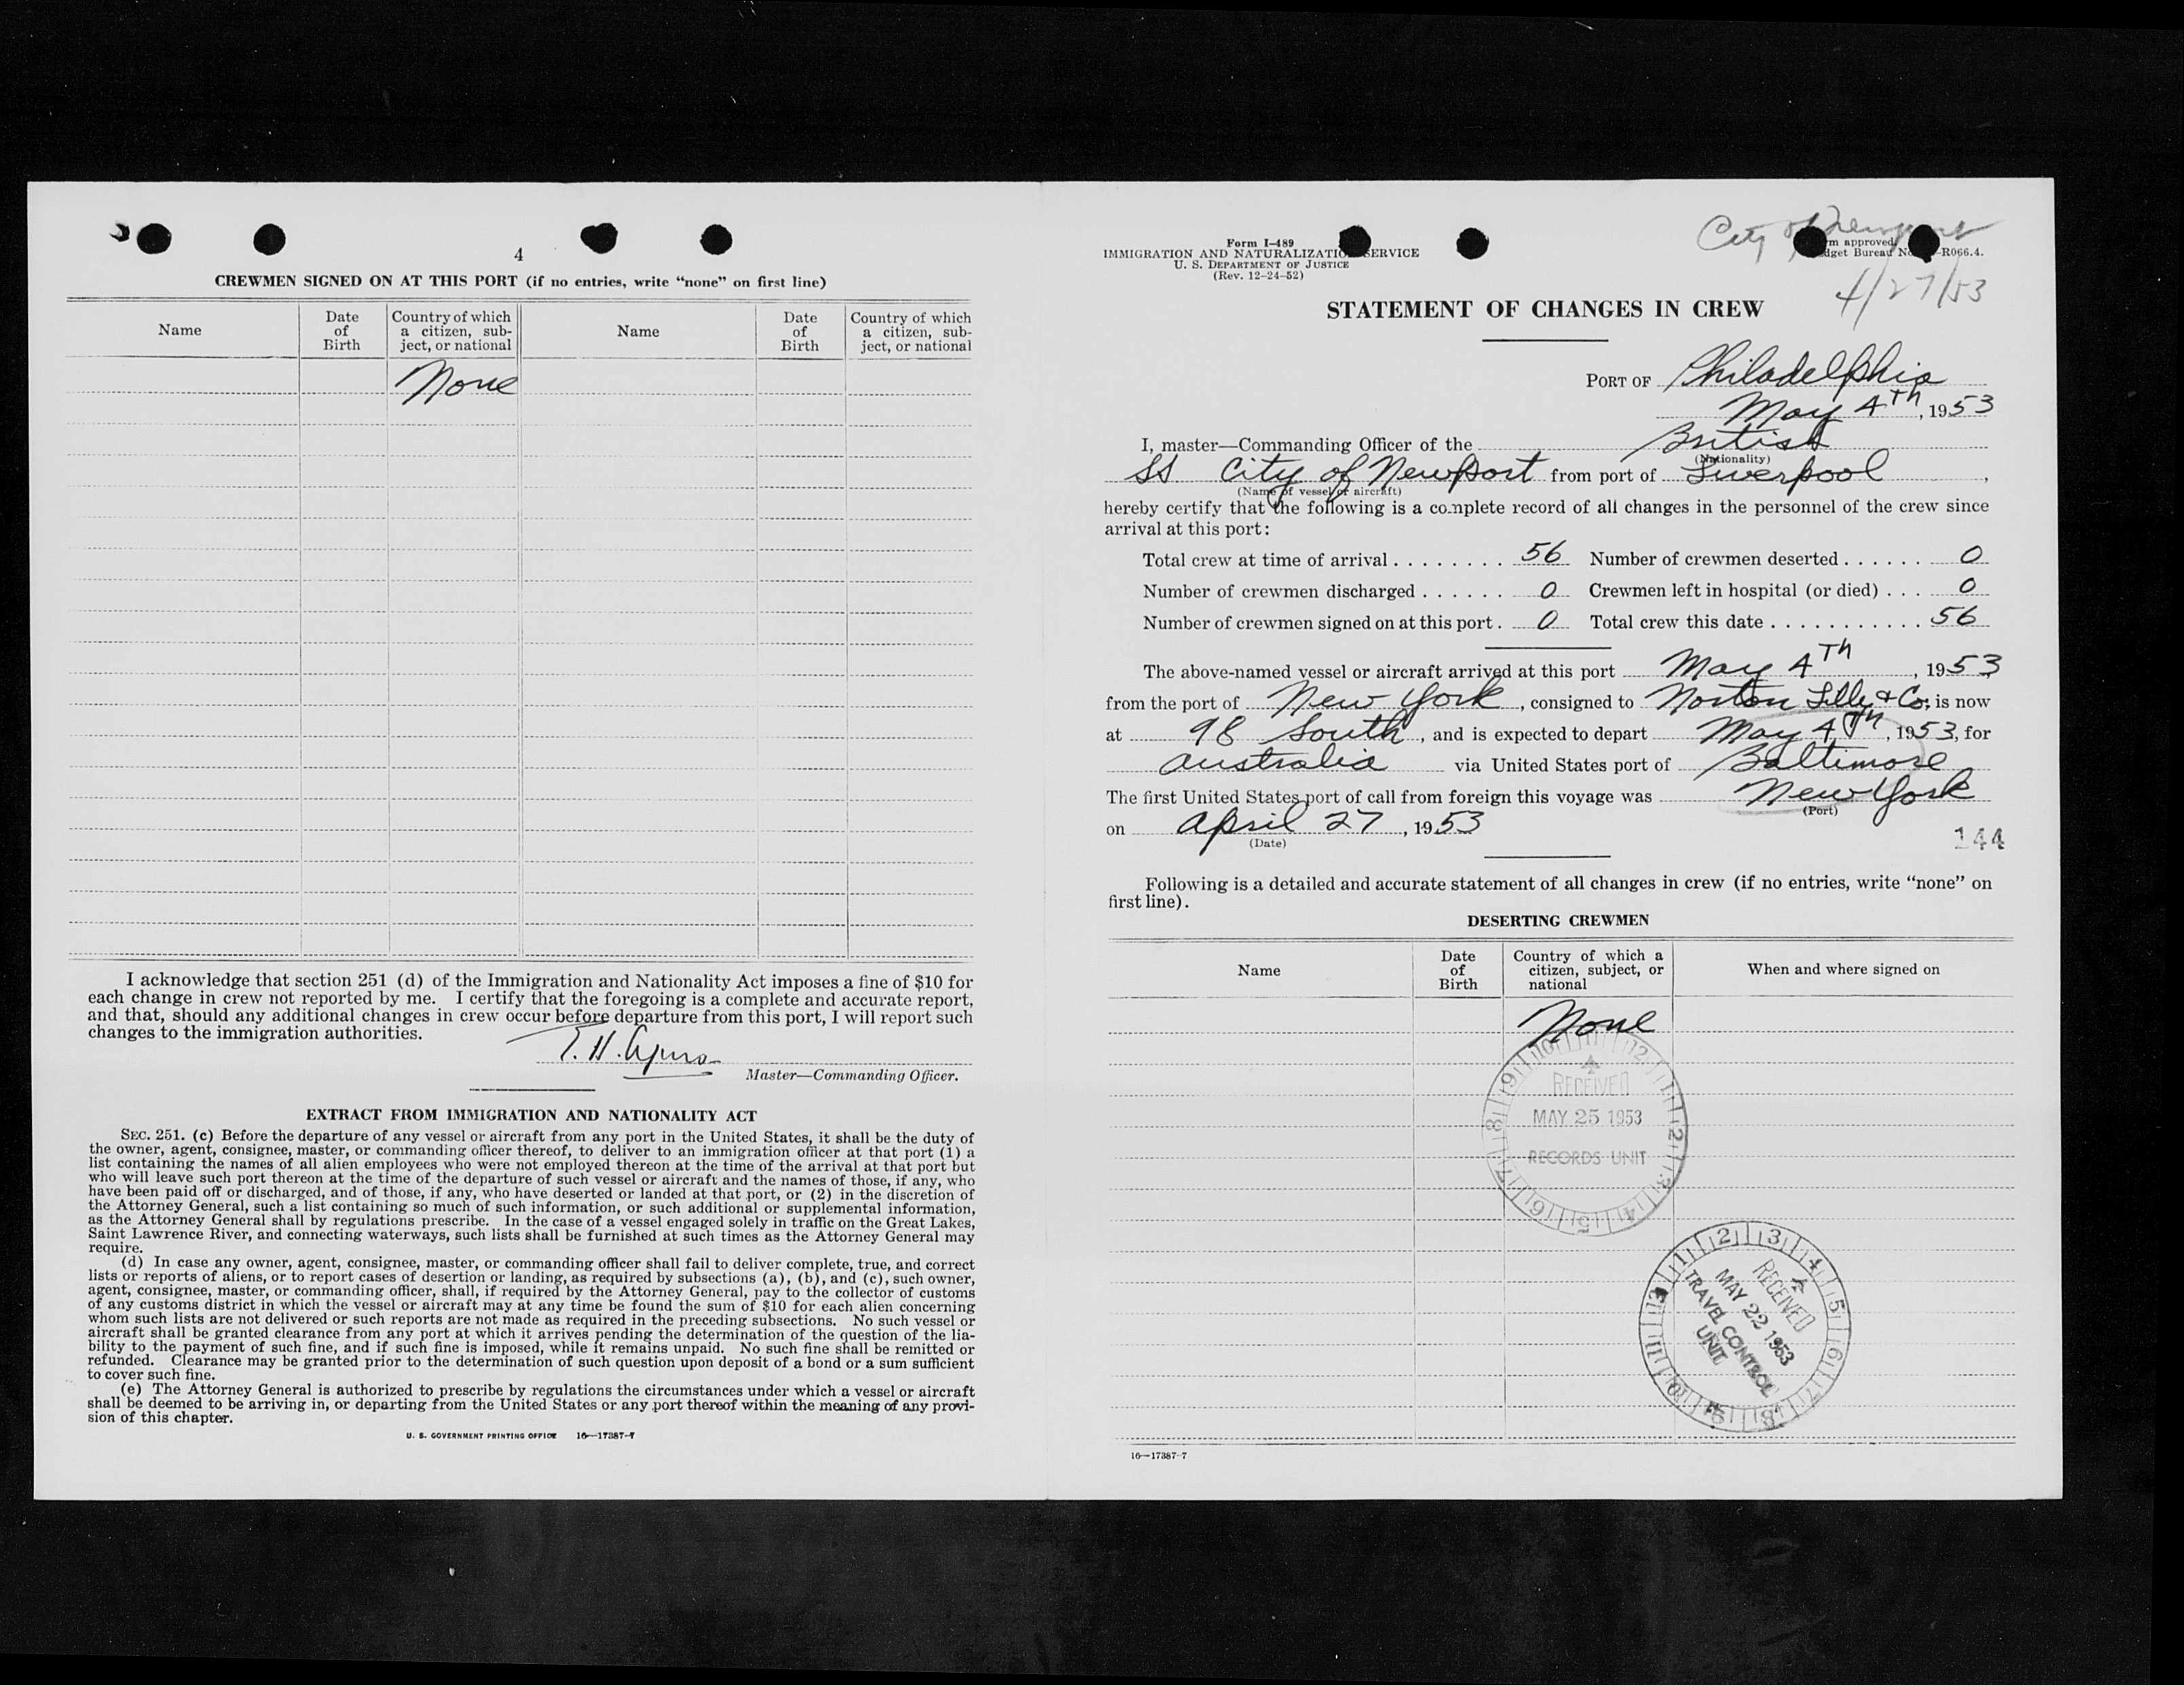 4
CREWMEN SIGNED ON AT THIS PORT (if no entries, write “none” on first line)
Name
Date of Birth
Country of which a citizen, subject, or national
Name
Date of Birth
Country of which a citizen, subject, or national
None
I acknowledge that section 251 (d) of the Immigration and Nationality Act imposes a fine of $10 for
each change in crew not reported by me. I certify that the foregoing is a complete and accurate report,
and that, should any additional changes in crew occur before departure from this port, I will report such
changes to the immigration authorities.
T. H.
Master—Commanding Officer.
EXTRACT FROM IMMIGRATION AND NATIONALITY ACT
SEC. 251. (c) Before the departure of any vessel or aircraft from any port in the United States, it shall be the duty of
the owner, agent, consignee, master, or commanding officer thereof, to deliver to an immigration officer at that port (1) a
list containing the names of all alien employees who were not employed thereon at the time of the arrival at that port but
who will leave such port thereon at the time of the departure of such vessel or aircraft and the names of those, if any, who
have been paid off or discharged, and of those, if any, who have deserted or landed at that port, or (2) in the discretion of
the Attorney General, such a list containing so much of such information, or such additional or supplemental information,
as the Attorney General shall by regulations prescribe. In the case of a vessel engaged solely in traffic on the Great Lakes,
Saint Lawrence River, and connecting waterways, such lists shall be furnished at such times as the Attorney General may
require.
(d) In case any owner, agent, consignee, master, or commanding officer shall fail to deliver complete, true, and correct
lists or reports of aliens, or to report cases of desertion or landing, as required by subsections (a), (b), and (c), such owner,
agent, consignee, master, or commanding officer, shall, if required by the Attorney General, pay to the collector of customs
of any customs district in which the vessel or aircraft may at any time be found the sum of $10 for each alien concerning
whom such lists are not delivered or such reports are not made as required in the preceding subsections. No such vessel or
aircraft shall be granted clearance from any port at which it arrives pending the determination of the question of the lia-
bility to the payment of such fine, and if such fine is imposed, while it remains unpaid. No such fine shall be remitted or
refunded. Clearance may be granted prior to the determination of such question upon deposit of a bond or a sum sufficient
to cover such fine.
(e) The Attorney General is authorized to prescribe by regulations the circumstances under which a vessel or aircraft
shall be deemed to be arriving in, or departing from the United States or any port thereof within the meaning of any provi-
sion of this chapter.
U. S. GOVERNMENT PRINTING OFFICE 16—17387-7
City of Newport
4/27/53
Form I-489
IMMIGRATION AND NATURALIZATION SERVICE
U. S. DEPARTMENT OF JUSTICE
(Rev. 12-24-52)
approved
Bureau No. -R066.4.
STATEMENT OF CHANGES IN CREW
PORT OF Philadelphia
May 4th, 1953
I, master—Commanding Officer of the British
(Nationality)
SS City of Newport from port of Liverpool,
(Name of vessel or aircraft)
hereby certify that the following is a complete record of all changes in the personnel of the crew since
arrival at this port:
Total crew at time of arrival . . . . . . . . 56 Number of crewmen deserted . . . . . . 0
Number of crewmen discharged . . . . . . 0 Crewmen left in hospital (or died) . . . 0
Number of crewmen signed on at this port . 0 Total crew this date . . . . . . . . . . . 56
The above-named vessel or aircraft arrived at this port May 4th, 1953
from the port of New York, consigned to Norton Lilly & Co; is now
at 98 South, and is expected to depart May 4th, 1953, for
Australia via United States port of Baltimore
The first United States port of call from foreign this voyage was New York
(Port)
on April 27, 1953
(Date)
144
Following is a detailed and accurate statement of all changes in crew (if no entries, write “none” on
first line).
DESERTING CREWMEN
Name
Date of Birth
Country of which a citizen, subject, or national
When and where signed on
None
RECEIVED
MAY 25 1953
RECORDS UNIT
RECEIVED
MAY 22 1953
TRAVEL CONTROL
UNIT
16—17387-7